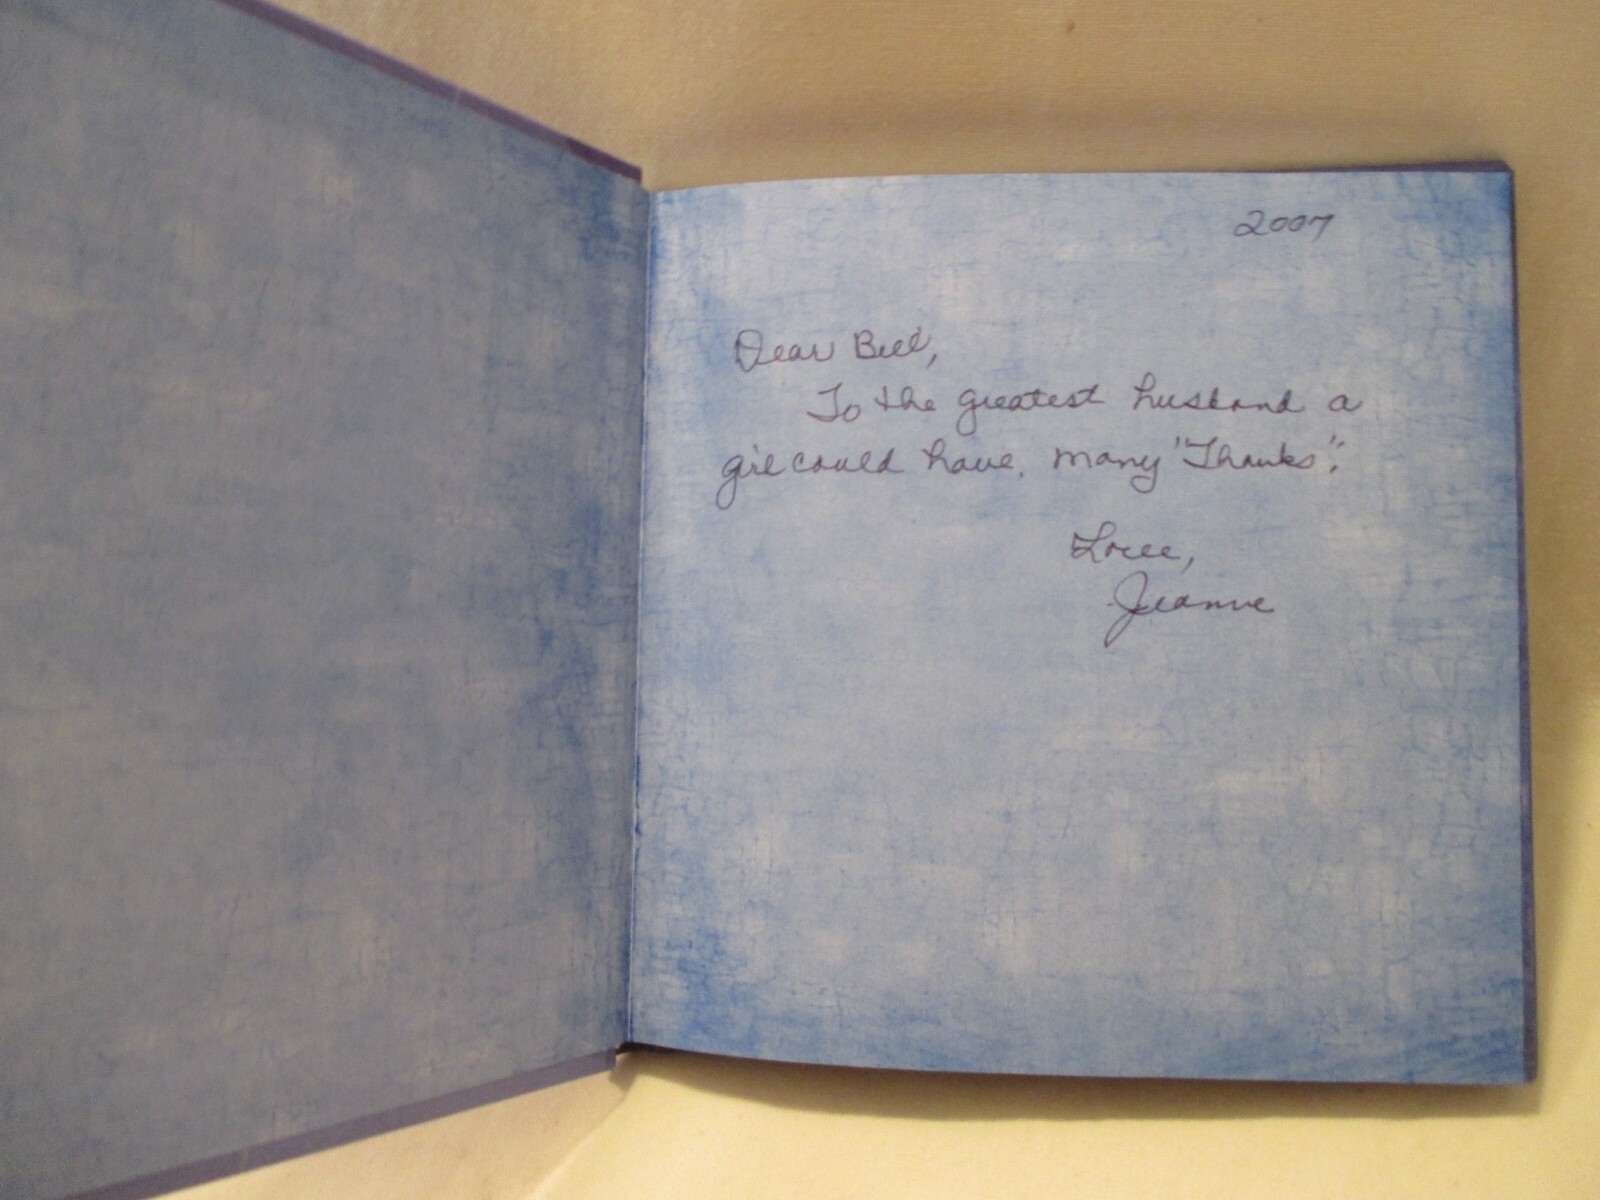 2007
Dear Bill,
To the greatest husband a
girl could have. Many "Thanks".
Love,
Jeanne